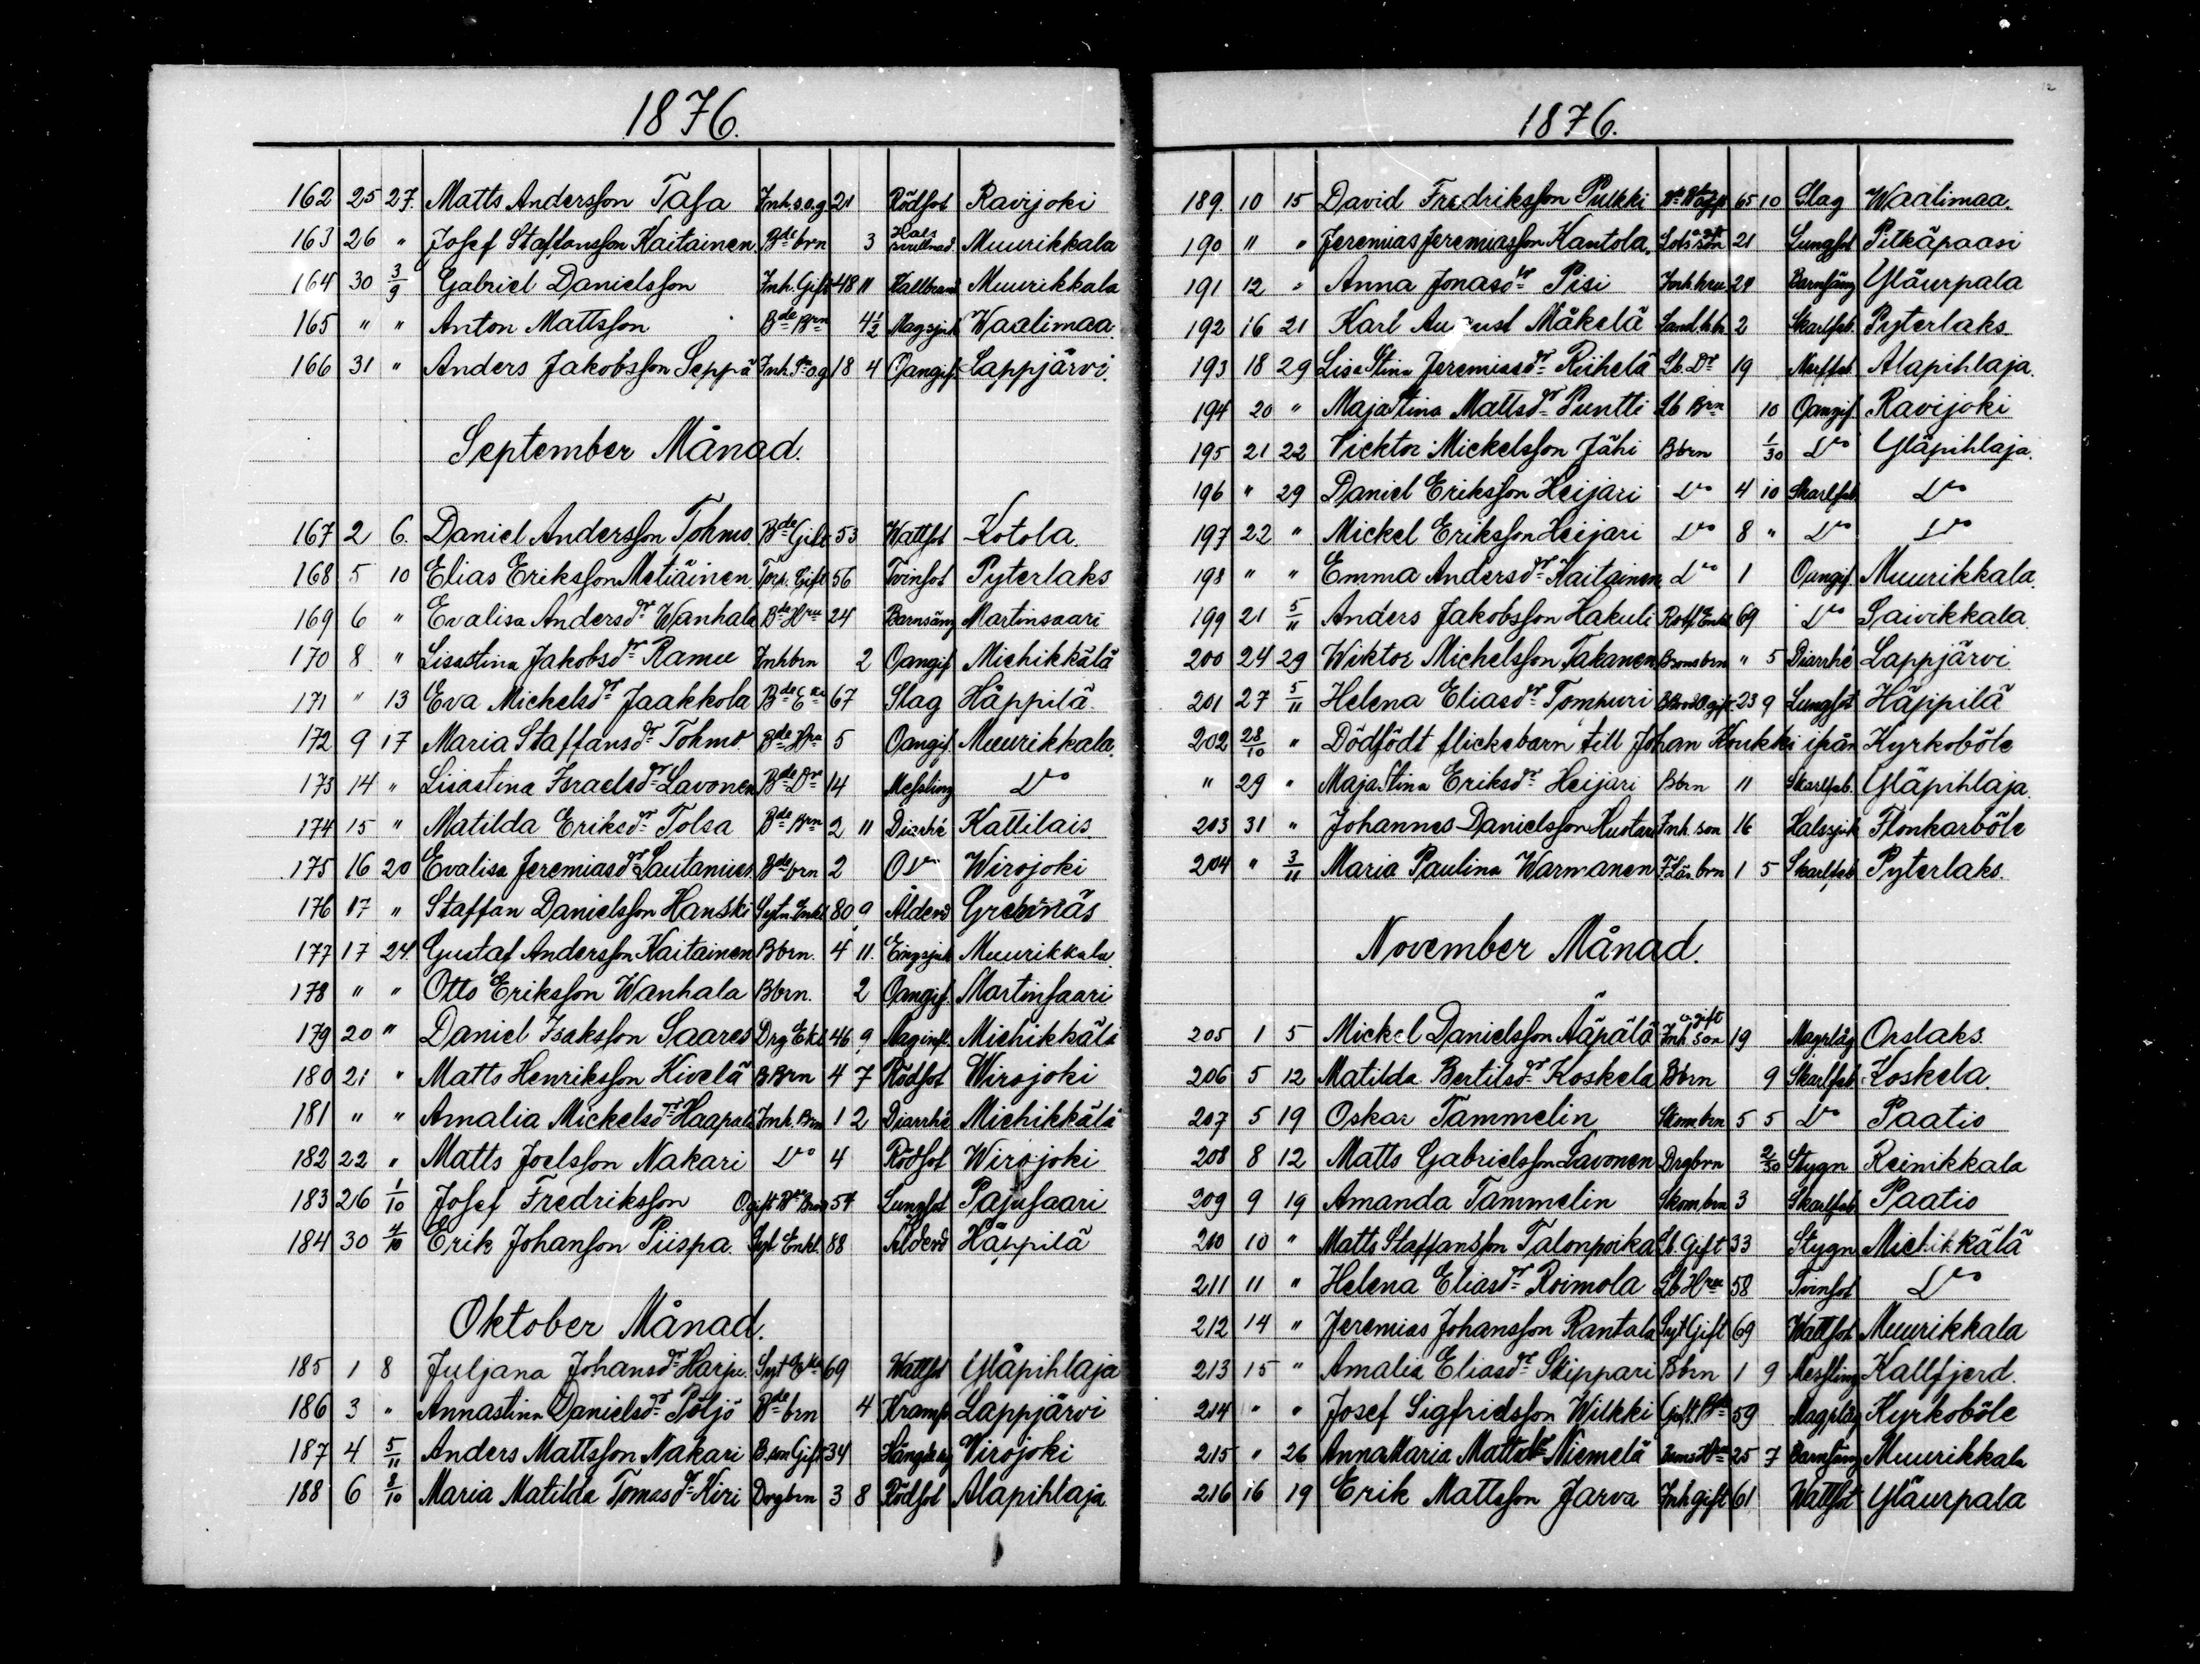 1876.
162 25 27. Matts Andersson Tasa Inh. s. o. g 21 Rödsot Ravijoki
163 26 " Josef Staffansson Kaitainen Bde brn 3 Hals svullnad Muurikkala
164 30 3/9 Gabriel Danielsson Inh. Gift 48 11 Kallbrand Muurikkala
165 " " Anton Mattsson Bde Brn 4 1/2 Magsjuk Waalimaa
166 31 " Anders Jakobsson Seppä Inh. Sn o.g 18 4 Oangif. Lappjärvi
September Månad.
167 2 6. Daniel Andersson Tohmo Bde Gift 53 Wattsot Kotola
168 5 10 Elias Eriksson Metiäinen Torp. Gift 56 Tvinsot Pyterlaks
169 6 " Evalisa Andersdr Wanhala Bde Hru 24 Barnsäng Martinsaari
170 8 " Lisastina Jakobsdr Ramu Inhbrn 2 Oangif Miehikkälä
171 " 13 Eva Mickelsdr Jaakkola Bde Eka 67 Slag Häppilä
172 9 17 Maria Staffansdr Tohmo Bde 5 Oangif. Muurikkala
173 14 " Lisastina Israelsdr Lavonen Bde Dr 14 Messling Do
174 15 " Matilda Eriksdr Tolsa Bde Brn 2 11 Diarrhé Kattilais
175 16 20 Evalisa Jeremiasdr Lautamies Bde brn 2 Do Wirojoki
176 17 " Staffan Danielsson Hanski Sytn. Enkl 80 9 Ålderd Grennäs
177 17 24. Gustaf Andersson Kaitainen Bbrn. 4 11. Engsjuk Muurikkala
178 " " Otto Eriksson Wanhala Bbrn. 2 Oangif. Martinsaari
179 20 " Daniel Isaksson Saares Drg Ekl 46 9 Maginfl. Miehikkälä
180 21 " Matts Henriksson Kivelä B Brn 4 7 Rödsot Wirojoki
181 " " Amalia Mickelsdr Haapala Inh. Brn 1 2 Diarrhé Miehikkälä
182 22 " Matts Joelsson Nakari Do 4 Rödsot Wirojoki
183 26 1/10 Josef Fredriksson Ogift Bde 54 Lungsot Pajusaari
184 30 4/10 Erik Johansson Piispa Syt Enkl. 88 Ålderd Häppilä
Oktober Månad.
185 1 8 Juljana Johansdr Harju Syt Eka 69 Wattsot Yläpihlaja
186 3 " Annastina Danielsdr Pöljö Bde brn 4 Kramp. Lappjärvi
187 4 5/11 Anders Mattsson Nakari B. son Gift 34 Virojoki
188 6 8/10 Maria Matilda Tomasdr Kiri Drgbrn 3 8 Rödsot Alapihlaja
1876.
189. 10 15 David Fredriksson Pulkki 65 10 Slag Waalimaa.
190 " " Jeremias Jeremiasson Kantola Lots son o. gift 21 Lungsot Pitkäpaasi
191 12 " Anna Jonasdr Pisi Inh hru 29 Barnsäng Yläurpala
192 16 21 Karl August Mäkelä 2 Skarlfeb. Pyterlaks
193 18 29 Lisa Stina Jeremiasdr Riihelä Lb. Dr 19 Nerffeb. Alapihlaja.
194 20 " Maja Stina Mattsdr Puntti Lb Brn 10 Oangif. Ravijoki
195 21 22 Vicktor Mickelsson Jähi Bbrn 1/30 Do Yläpihlaja.
196 " 29 Daniel Eriksson Heijari Do 4 10 Skarlfeb Do
197 22 " Mickel Eriksson Heijari Do 8 " Do Do
198 " " Emma Andersdr Kaitainen Do 1 Oangif. Muurikkala.
199 21 5/11 Anders Jakobsson Hakuli Rotf Enkl 69 Do Saivikkala
200 24 29 Wiktor Michelsson Takanen Bsonsbrn " 5 Diarrhé Lappjärvi
201 27 5/11 Helena Eliasdr Tompuri 23 9 Lungsot Häppilä
202 28/10 " Dödfödt flickebarn till Johan Koukki ifrån Kyrkoböle
" 29 " Maja Stina Eriksdr Heijari Bbrn 11 Skarlfeb. Yläpihlaja.
203 31 " Johannes Danielsson Hustari Inh. son 16 Halssjuk Flonkarböle
204 " 3/11 Maria Paulina Warmanen brn 1 5 Skarlfeb Pyterlaks.
November Månad.
205 1 5 Mickel Danielsson Ääpälä Inh son o. gift 19 Magplåg Orslaks.
206 5 12 Matilda Bertilsdr Koskela Bbrn 9 Skarlfeb Koskela.
207 5 19 Oskar Tammelin Skom brn 5 5 Do Paatio
208 8 12 Matts Gabrielsson Lavonen Drgbrn 2/30 Stygn Reinikkala
209 9 19 Amanda Tammelin Skom brn 3 Skarlfeb Paatio
210 10 " Matts Staffansson Talonpoika Lb. Gift 33 Stygn Miehikkälä
211 11 " Helena Eliasdr Roimola Lb Hru 58 Tvinsot Do
212 14 " Jeremias Johansson Rantala Syt Gift 69 Wattsot Muurikkala
213 15 " Amalia Eliasdr Skippari Bbrn 1 9 Messling Kallfjerd.
214 " " Josef Sigfridsson Wilkki Gift. Bde 59 Magplåg Kyrkoböle
215 " 26 Anna Maria Mattsdr Niemelä 25 7 Barnsäng Muurikkala
216 16 19 Erik Mattsson Jarva Inh gift 61 Wattsot Yläurpala